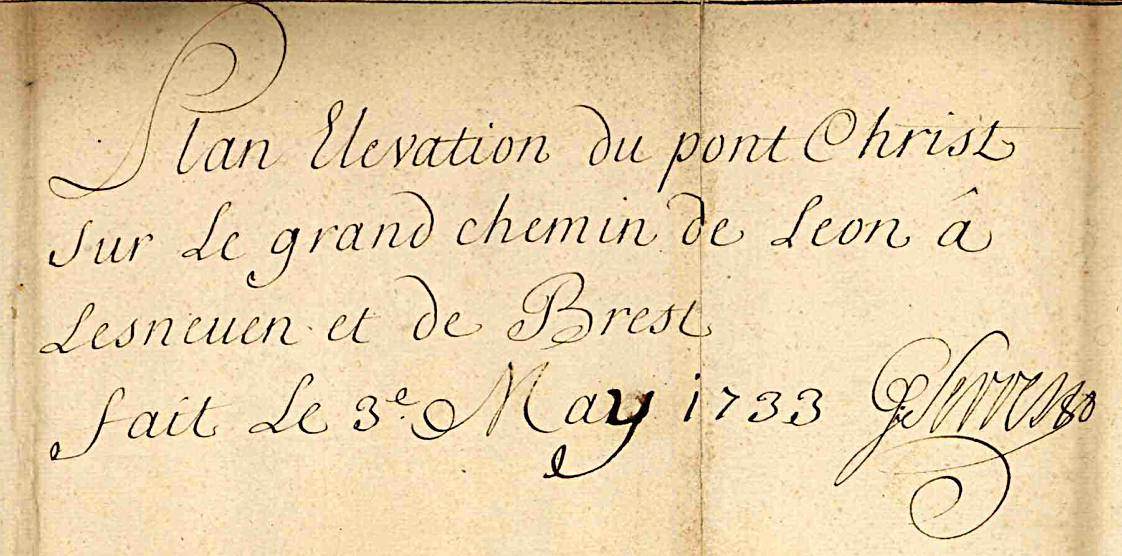 Plan Elevation du pont Christ
sur Le grand chemin de Leon â
Lesneuen et de Brest
fait Le 3e. May 1733